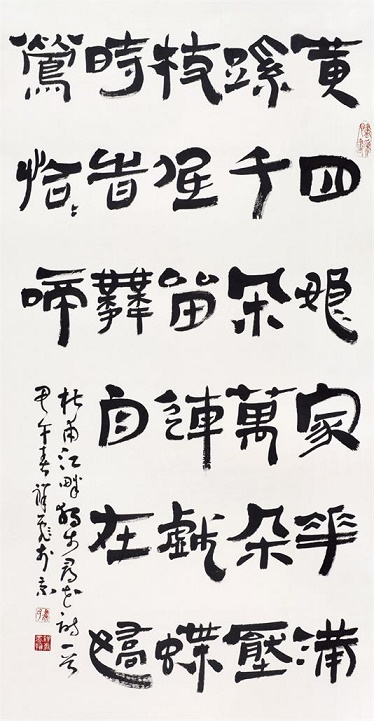 黄四娘家華滿
蹊千朵萬朵壓
枝低留連戲蝶
時旹舞自在嬌
鶯恰〻啼
杜甫江畔獨步尋花詩一首
甲午春於京